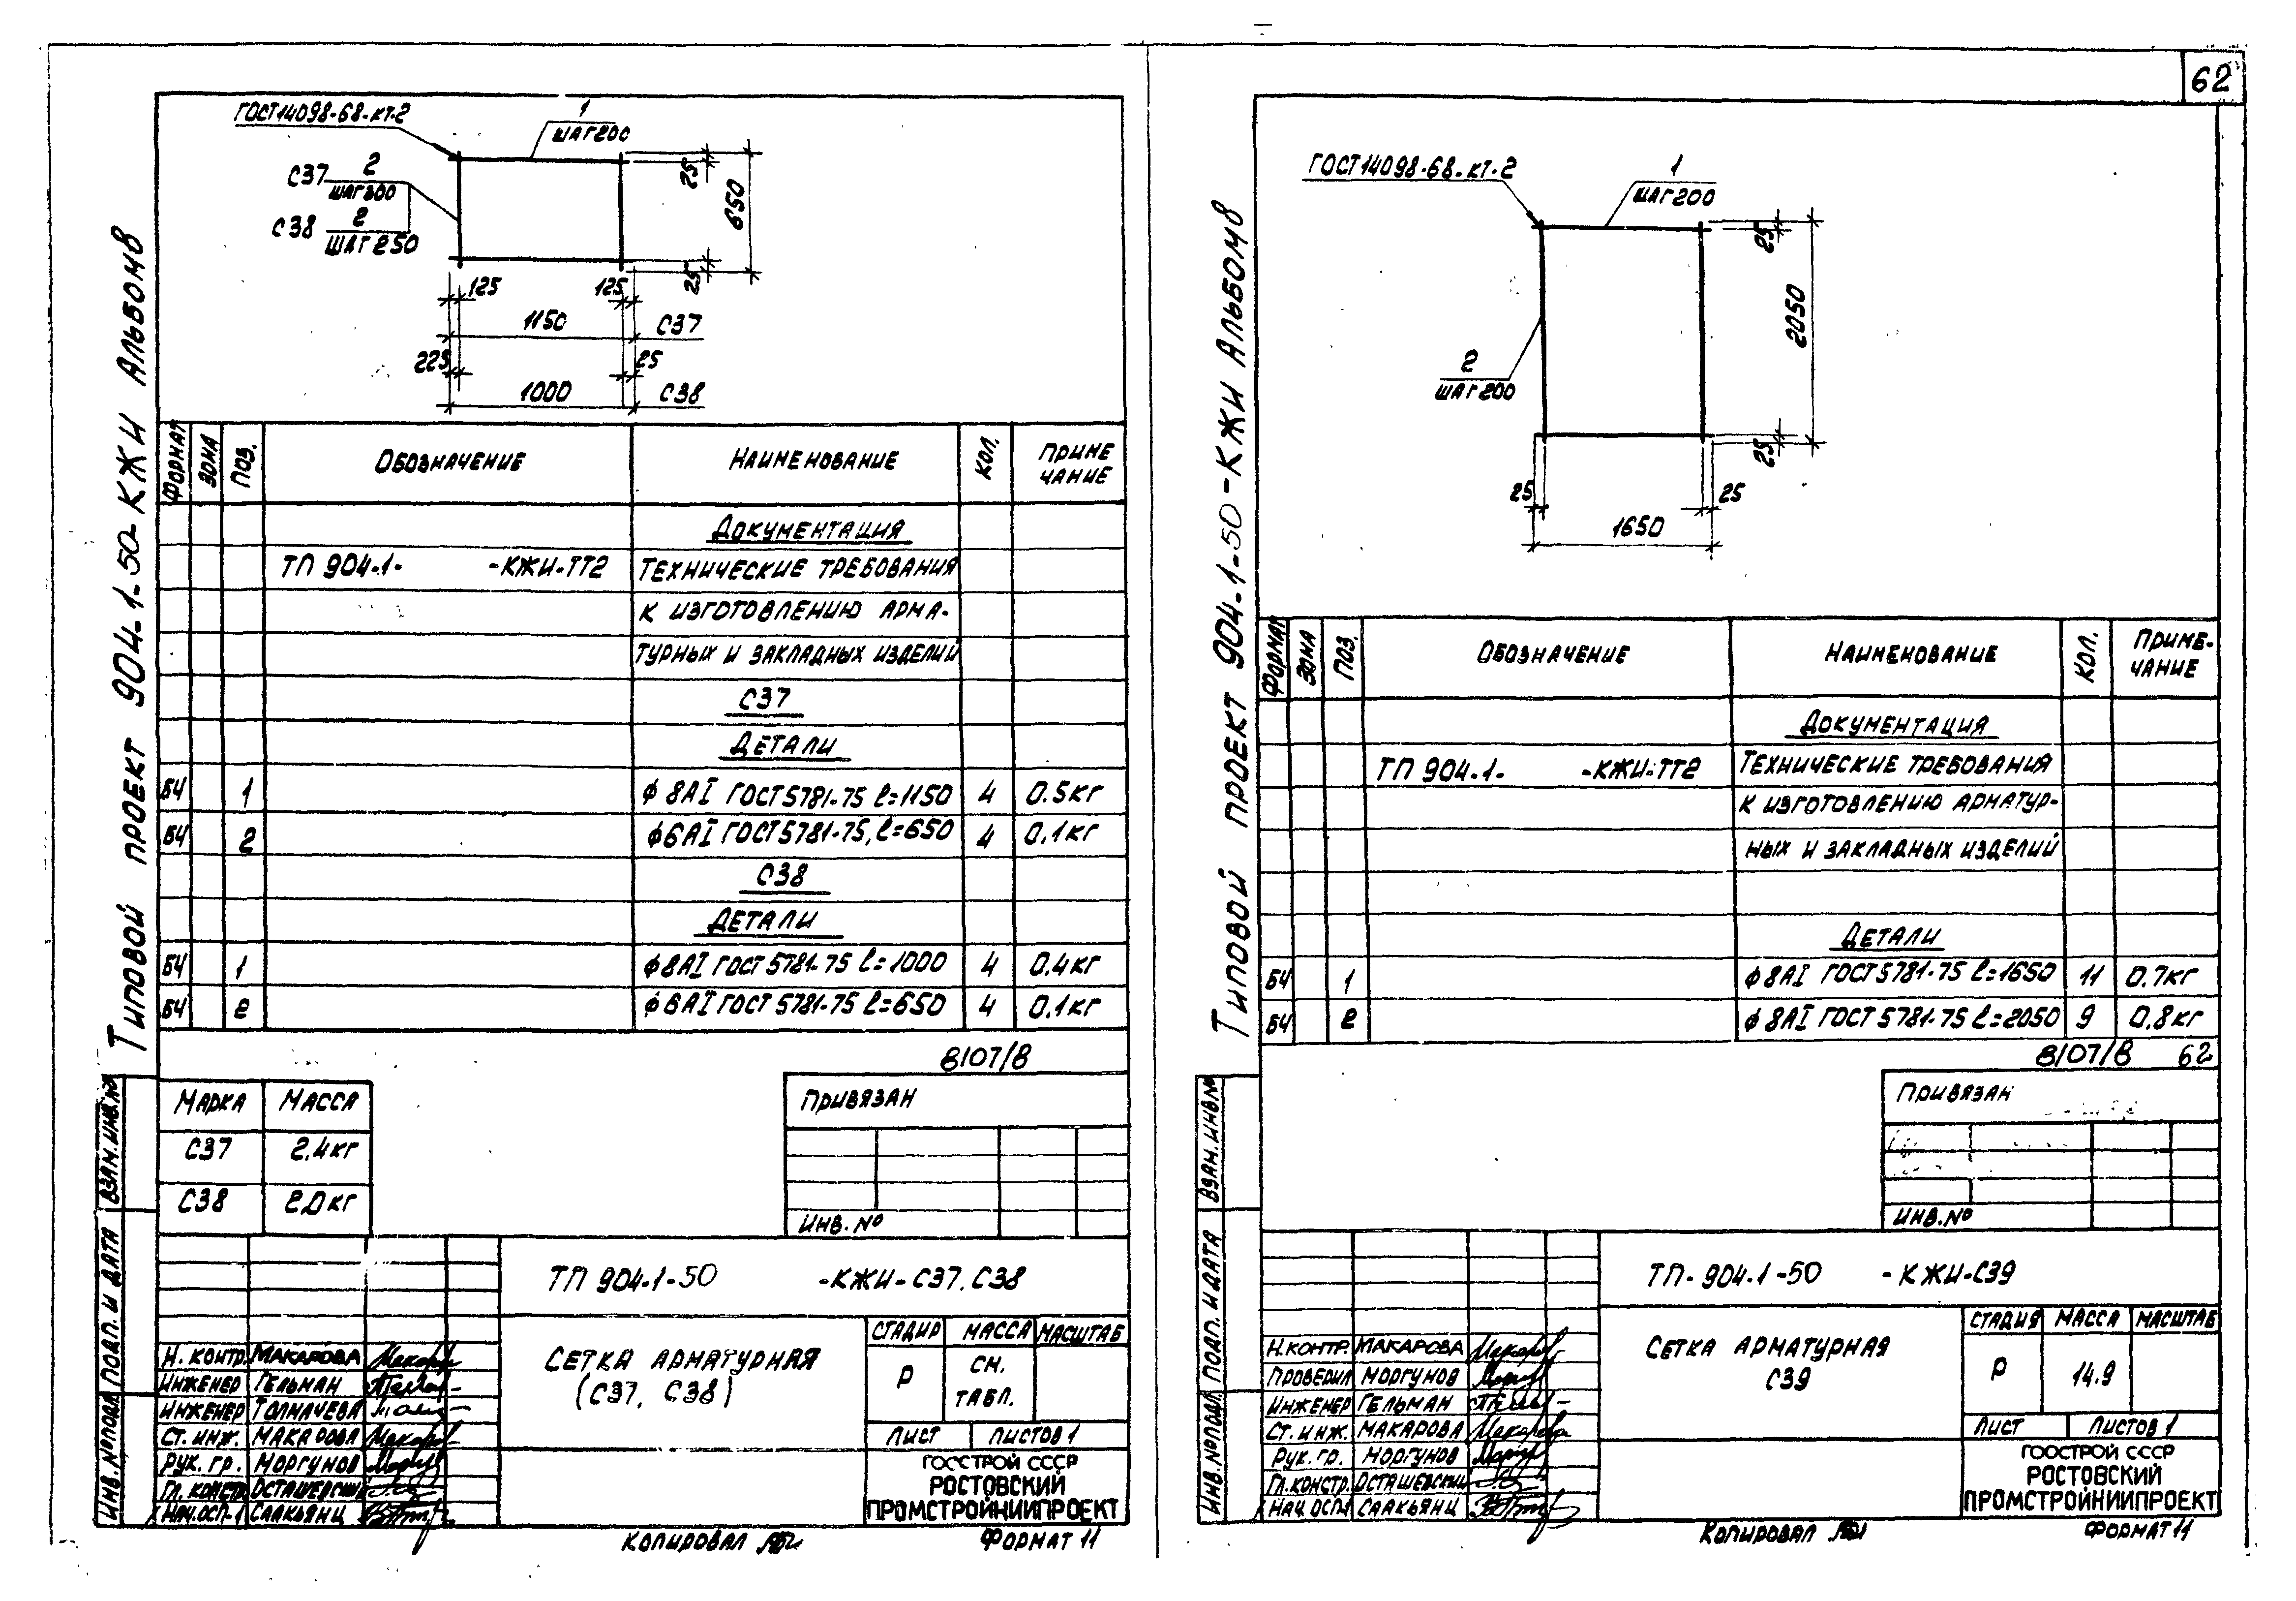 62
Типовой проект 904-1-50-КЖИ Альбом 8
ГОСТ14098-68-КТ-2
1
ШАГ200
С37 2
ШАГ300
С38 2
ШАГ250
25
650
25
125 125
1150 С37
225 25
1000 С38
Формат Зона Поз. Обозначение Наименование Кол. Приме
чание
Документация
ТП 904-1- -КЖИ-ТТ2 Технические требования
к изготовлению арма-
турных и закладных изделий
С37
Детали
БЧ 1 ф8АI ГОСТ5781-75 ℓ=1150 4 0.5кг
БЧ 2 ф6АI ГОСТ5781-75, ℓ=650 4 0.1кг
С38
Детали
БЧ 1 ф8АI ГОСТ5781-75 ℓ=1000 4 0.4кг
БЧ 2 ф6АI ГОСТ5781-75 ℓ=650 4 0.1кг
8107/8
Марка Масса
С37 2.4кг
С38 2.0кг
Привязан
Инв.№
Взам.инв.№
Подп. и дата
Инв.№подл.
ТП 904-1-50 -КЖИ-С37.С38
Сетка арматурная
(С37, С38)
Стадия Масса Масштаб
Р См.
табл.
Лист Листов 1
Госстрой СССР
РОСТОВСКИЙ
ПРОМСТРОЙНИИПРОЕКТ
Н. контр. Макарова
Инженер Гельман
Инженер Толмачева
Ст. инж. Макарова
Рук. гр. Моргунов
Гл. констр. Осташевский
Нач.ОСП-1 Саакьянц
Копировал
Формат 11
Типовой проект 904-1-50-КЖИ Альбом 8
ГОСТ14098-68-КТ-2
1
ШАГ200
2
ШАГ200
25
2050
25
25 25
1650
Формат Зона Поз. Обозначение Наименование Кол. Приме-
чание
Документация
ТП 904-1- -КЖИ-ТТ2 Технические требования
к изготовлению арматур-
ных и закладных изделий
Детали
БЧ 1 ф8АI ГОСТ5781-75 ℓ=1650 11 0.7кг
БЧ 2 ф8АI ГОСТ5781-75 ℓ=2050 9 0.8кг
8107/8 62
Привязан
Инв.№
Взам.инв.№
Подп. и дата
Инв.№подл.
ТП- 904-1-50 -КЖИ-С39
Сетка арматурная
С39
Стадия Масса Масштаб
Р 14.9
Лист Листов 1
Госстрой СССР
РОСТОВСКИЙ
ПРОМСТРОЙНИИПРОЕКТ
Н.контр. Макарова
Проверил Моргунов
Инженер Гельман
Ст. инж. Макарова
Рук. гр. Моргунов
Гл.констр. Осташевский
Нач.ОСП-1 Саакьянц
Копировал
Формат 11